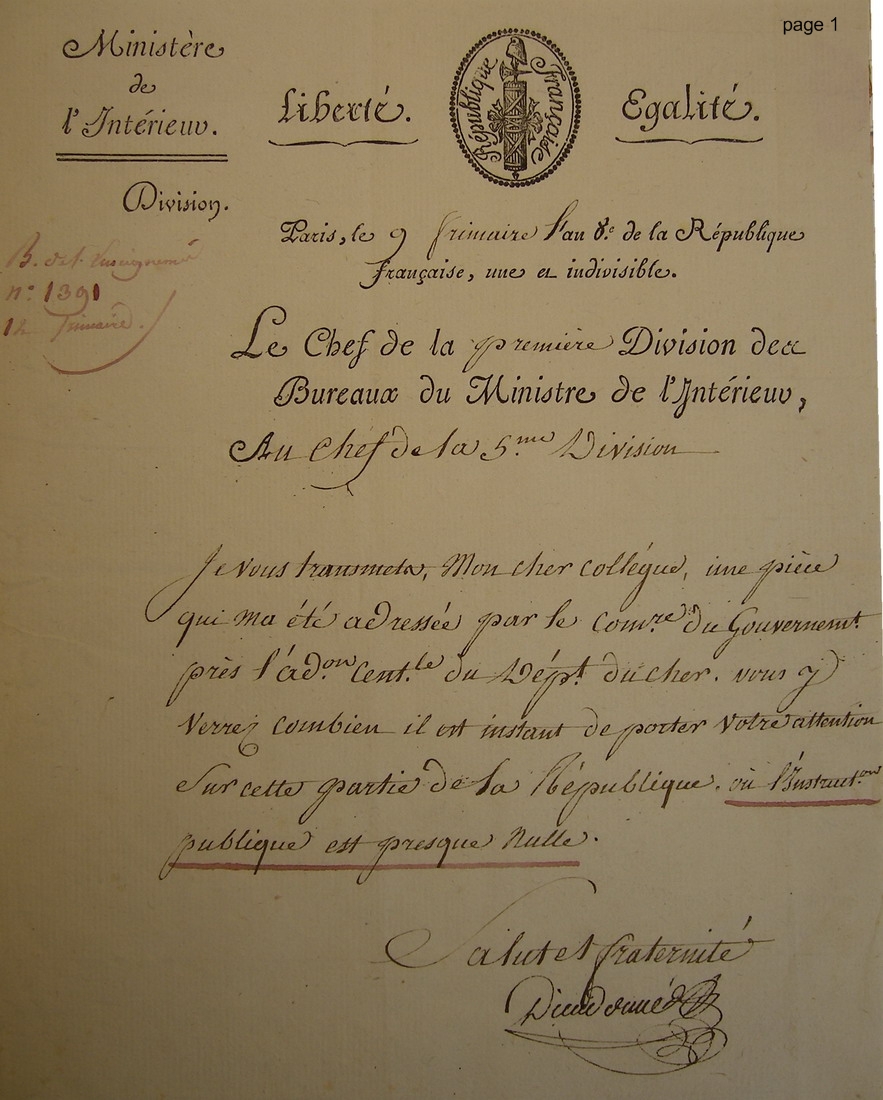 page 1
Ministère
de
l'Intérieur.
Division.
Liberté.
République Française
Egalité.
B. de l'Enseignemt
n.° 1391
12 frimaire.
Paris, le 9 frimaire l'an 8.e de la République
française, une et indivisible.
Le Chef de la première Division des
Bureaux du Ministre de l'Intérieur,
Au Chef de la 5.me Division
Je vous transmets, Mon cher collégue, une pièce
qui ma été adressée par le Comre du Gouvernemt.
près l'ad.on Cent.le du Dépt. du cher. vous y
Verrez combien il est instant de porter votre attention
Sur cette partie de la République. où l'Instruct.on
publique est presque Nulle.
Salut et fraternité
Dieudonné